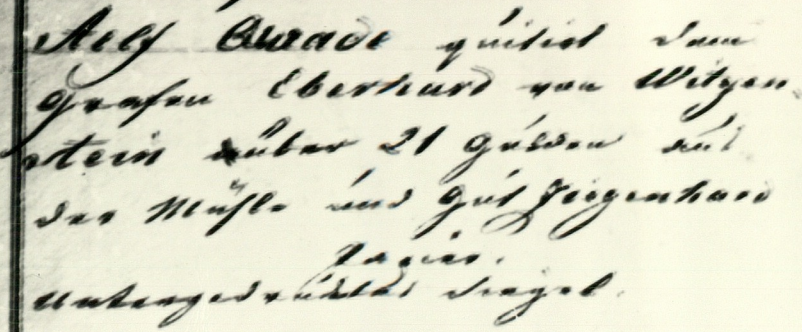 Aelf Quade quitirt dem
Grafen Eberhard von Witgen-
stein über 21 Gulden aus
der Mühle und Gut Ziegenhard
Papier.
Untergedrucktes Siegel.